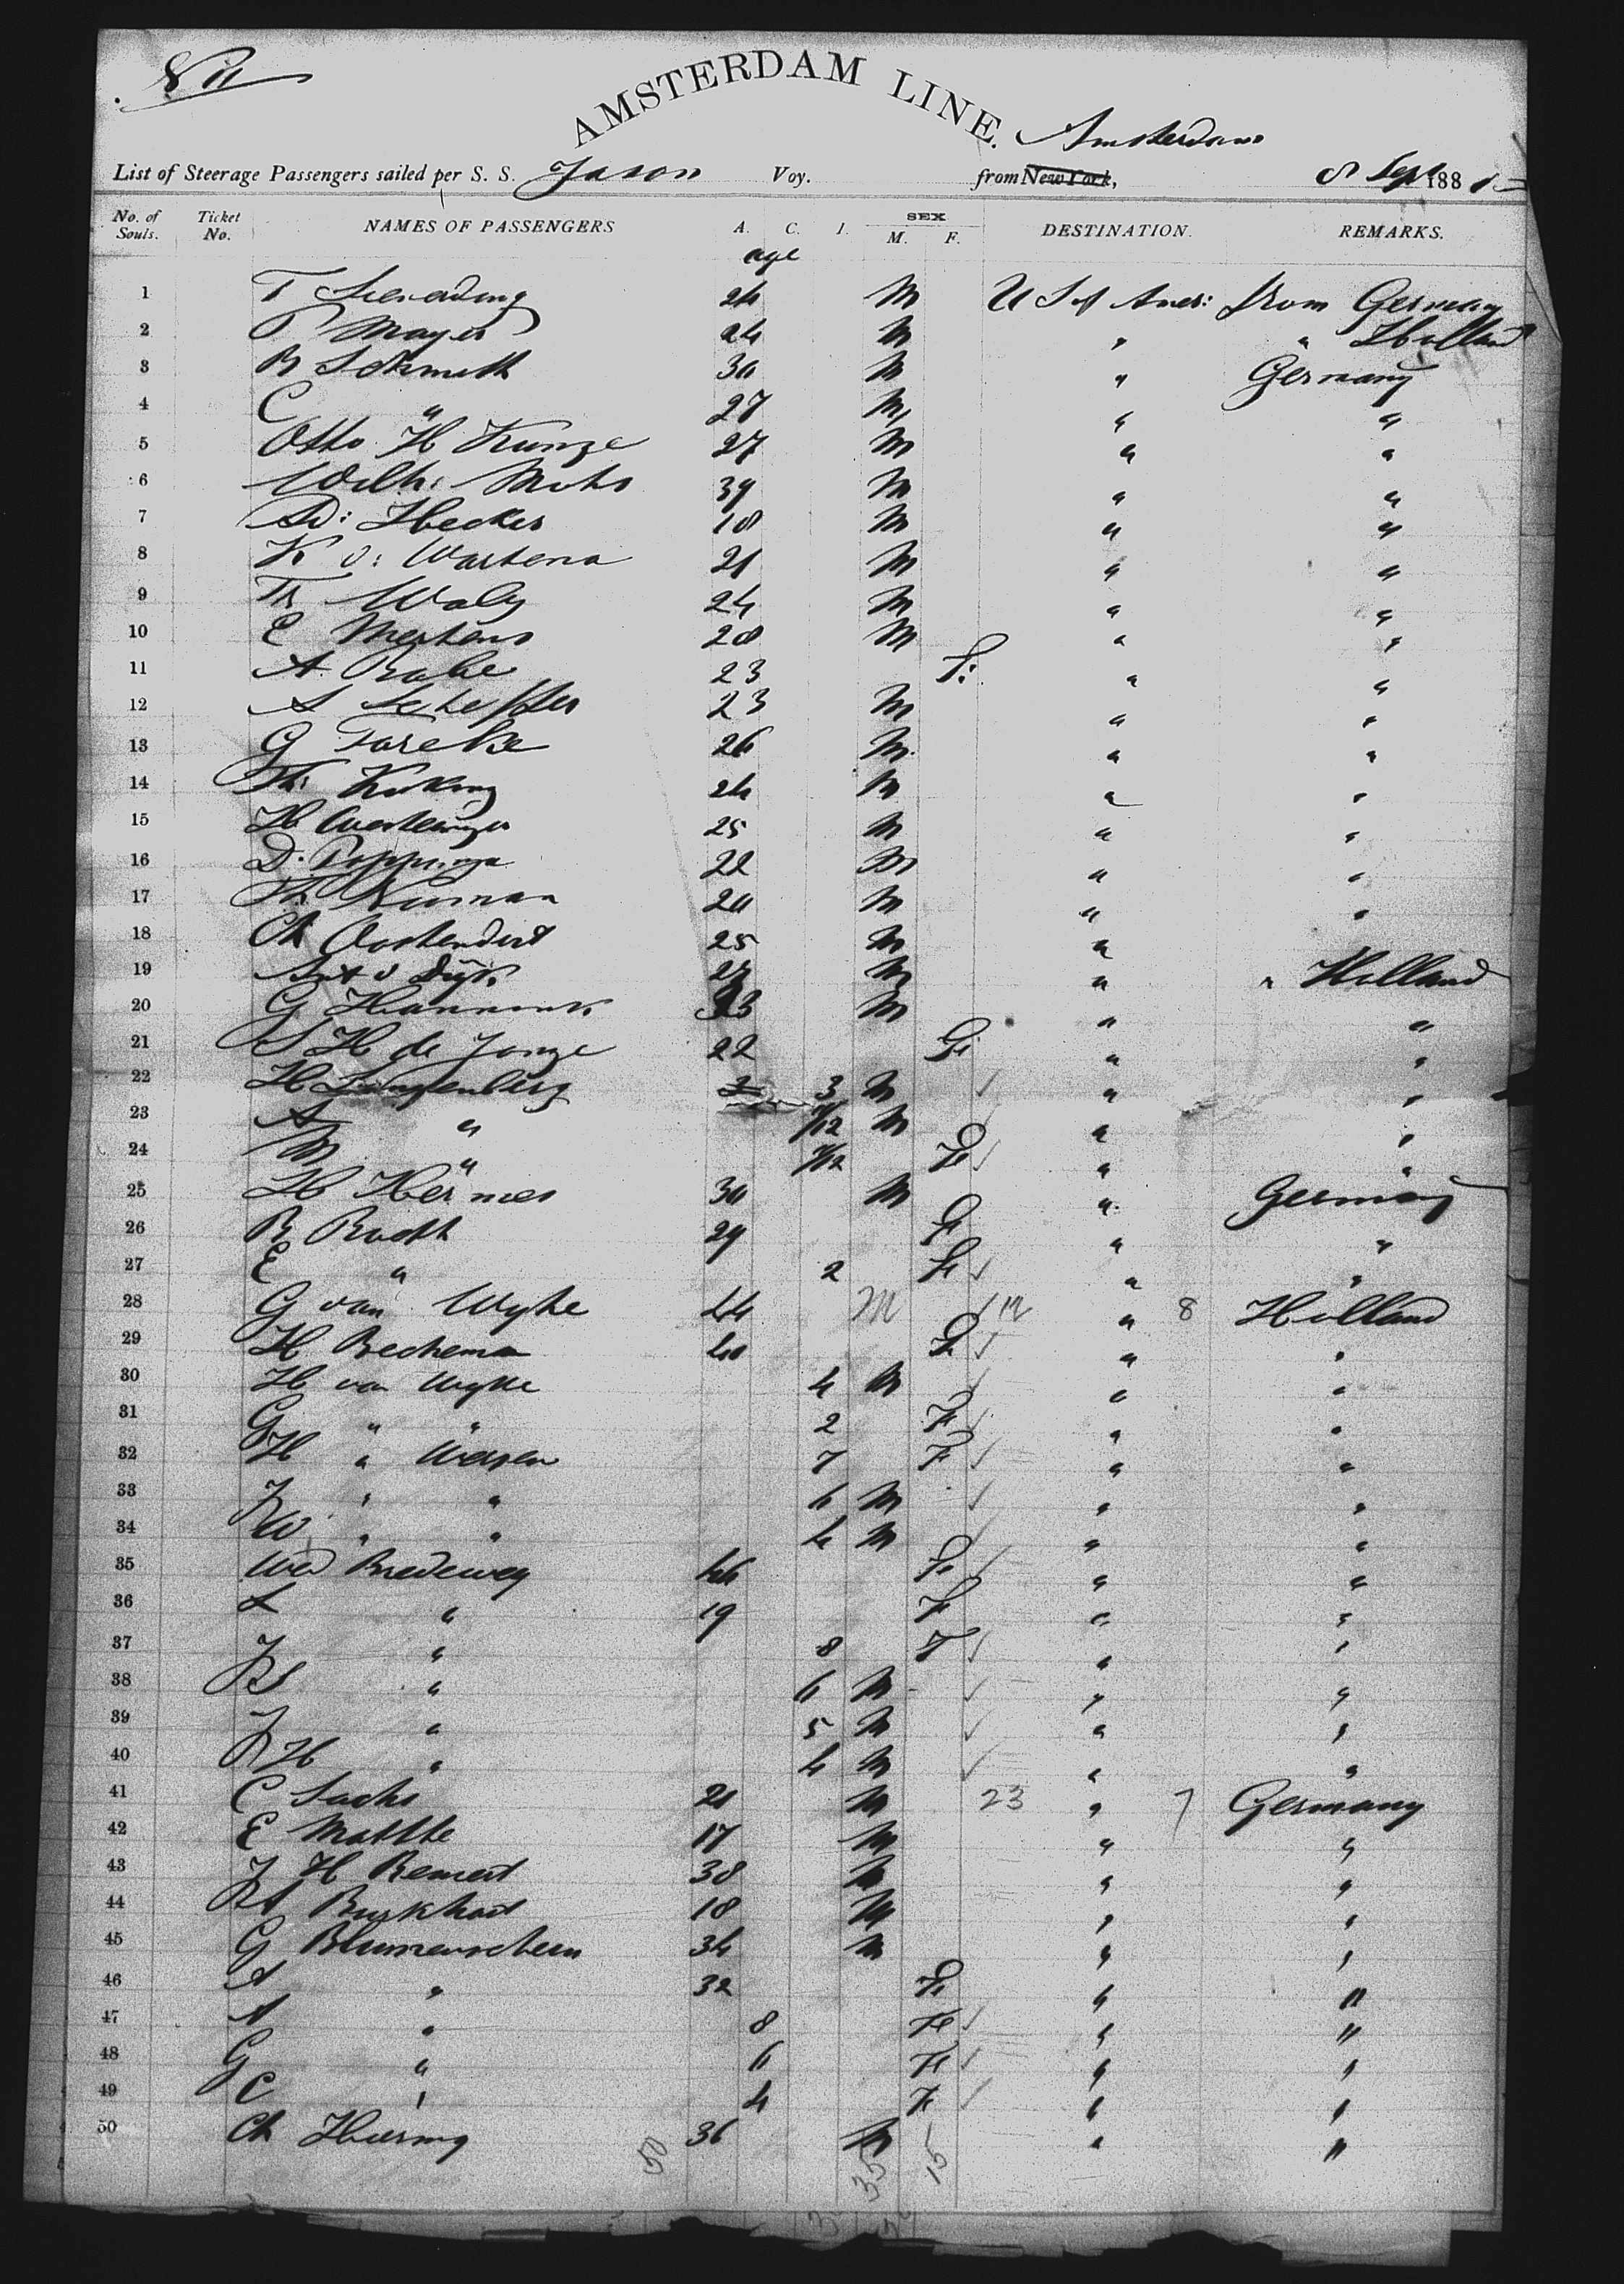 AMSTERDAM LINE.
Amsterdam
List of Steerage Passengers sailed per S. S. Jason Voy. from New York, 8 Sept 1881
No. of Souls. Ticket No. NAMES OF PASSENGERS A. C. I. SEX M. F. DESTINATION. REMARKS.
age
1 T 24 M U S of Amer: from Germany
2 P Mayer 24 M " " Holland
3 R Schmidt 30 M " Germany
4 C " 27 M " "
5 Otto H Kunze 27 M " "
6 Wilh: Mohs 39 M " "
7 Ad: Hecker 18 M " "
8 K v: Wartena 21 M " "
9 Fr Waly 24 M " "
10 E Mertens 28 M " "
11 A Rabe 23 F: " "
12 A Scheffer 23 M " "
13 G 26 M " "
14 24 M " "
15 H 25 M " "
16 D. Poppinga 22 M " "
17 20 M " "
18 Ch 25 M " "
19 Ant v Dijk 27 M " " Holland
20 G Hannink 23 M " "
21 S H de Jonge 22 F " "
22 H Langenberg 3 M " "
23 A " /12 M " "
24 M " /12 F " "
25 H Hermes 30 M " Germany
26 R Rodth 29 F " "
27 E " 2 F " "
28 G van Wyke 44 M M " 8 Holland
29 H Bechema 40 F " "
30 H van Wyke 4 M " "
31 G " " 2 F " "
32 H " Welsen 7 F " "
33 J " " 6 M " "
34 W " " 4 M " "
35 Wed Bredeweg 46 F " "
36 L " 19 F " "
37 J " 8 F " "
38 " 6 M " "
39 J " 5 M " "
40 R H " 4 M " "
41 C Sachs 21 M 23 " 7 Germany
42 E Matthe 17 M " "
43 J H Remert 38 M " "
44 Burkhart 18 M " "
45 G Blumenschein 34 M " "
46 A " 32 F " "
47 A " 8 F " "
48 G " 6 F " "
49 C " 4 F " "
50 Ch Hering 36 M " "
50 35 15